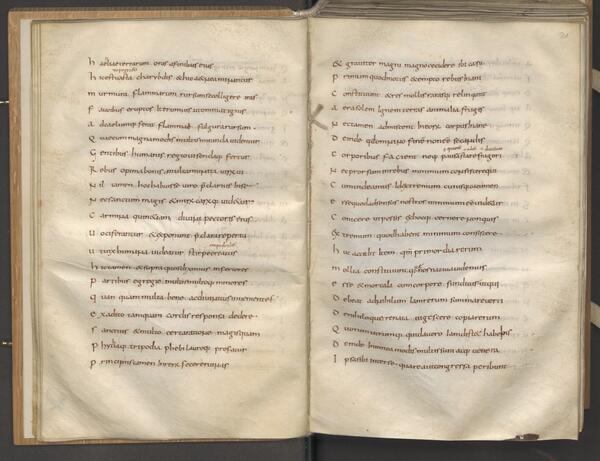 hic est uasta charybdis & hic aetnaea minantur
murmura flammarum rursum se colligere iras
faucibus eruptos iterum ut uomat ignis
ad caelumq; ferat flammai fulgura rursum
Quae cum magna modis multis miranda uidetur
Gentibus humanis regio uisendaq; fertur
Rebus opima bonis multa munita uirum ui
Nil tamen hoc habuisse uiro praeclarius in se
Nec sanctum magis & mirum carumq; uidetur
Carmina quin etiam diuini pectoris eius
uociferantur & exponunt praeclara reperta
ut uix humana uideatur stirpe creatus
hic tamen & supra quos diximus inferiores
partibus egregie multis multoq; minores
quam quam multa bene ac diuinitus inuenientes
ex adito tamquam cordis responsa dedere
sanctius & multo certa ratione magis quam
Phytia q tripodi a phoebi lauroq; profatur
Principiis tamen in rerum fecere ruinas
& grauiter magni magno cecidere ibi casu
Primum quod motus exempto rebus inani
Constituunt & res mollis rarasq; relinquunt
aera solem ignem terras animalia fruges
Nec tamen admiscent in eorum corpus inane
Deinde quod omnino finem non esse secandis
Corporibus faciunt neq; pausam stare fragori
Nec prorsum in rebus minimum consistere qui
Cum uideamus id extremum cuiusq; cacumen
esse quod ad sensus nostros minimum esse uidetur
Conicere ut possis ex hoc quae cernere non quis
extremum quod habent minimum consistere
huc accedit item qm primordia rerum
mollia constituunt quae nos natiua uidemus
esse & mortali cum corpore funditus utqui
Debeat ad nihilum iam rerum summa reuerti
Deniliiloque renata uigescere copia rerum
Quorum utrumque quid a uero iam distet habebis
Deinde inimica modis multis sunt atq; ueneno
Ipsa sibi inter se quare aut congressa peribunt